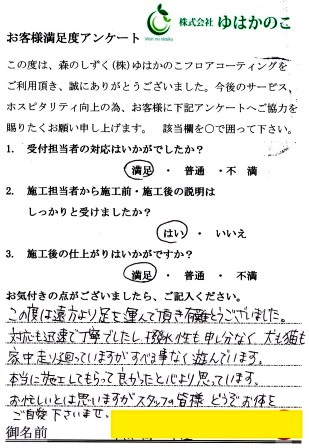 株式会社 ゆはかのこ
お客様満足度アンケート
この度は、森のしずく(株)ゆはかのこフロアコーティングを
ご利用頂き、誠にありがとうございました。今後のサービス、
ホスピタリティ向上の為、お客様に下記アンケートへご協力を
賜りたくお願い申し上げます。 該当欄を○で囲って下さい。
1. 受付担当者の対応はいかがでしたか?
満足 ・ 普通 ・不 満
2. 施工担当者から施工前・施工後の説明は
しっかりと受けましたか?
はい ・ いいえ
3. 施工後の仕上がりはいかがですか?
満足 ・ 普通 ・ 不満
お気付きの点がございましたら、ご記入ください。
この度は遠方より足を運んで頂き有難とうございました。
対応も迅速で丁寧でしたし、撥水性も申し分なく 犬も猫も
家中走り廻っていますがすべる事なく遊んでいます。
本当に施工してもらって良かったと心より思っています。
お忙しいとは思いますがスタッフの皆様 どうぞお体を
ご自愛下さいませ。
御名前